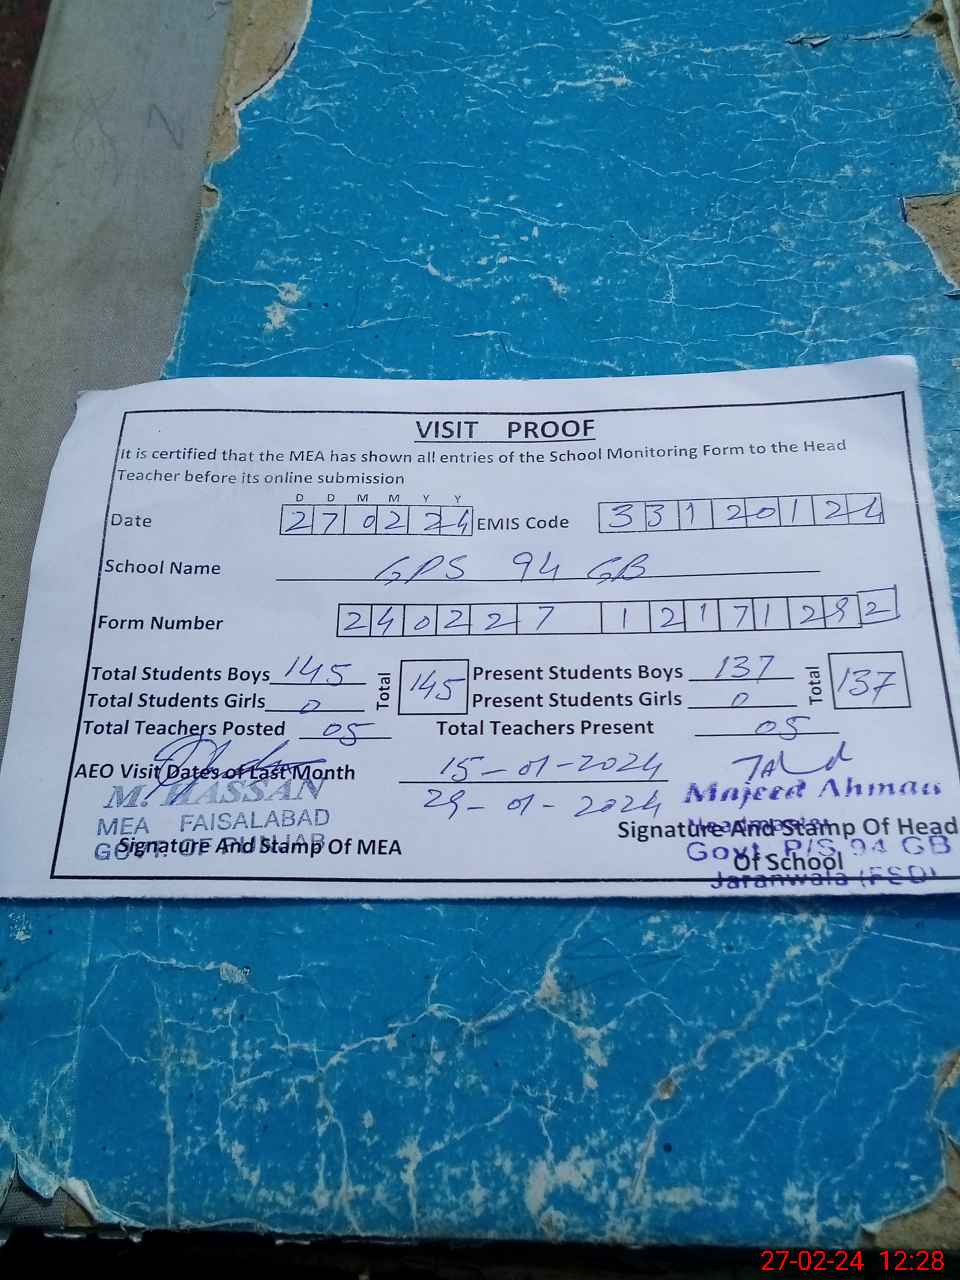 VISIT PROOF
It is certified that the MEA has shown all entries of the School Monitoring Form to the Head
Teacher before its online submission
D D M M Y Y
Date 270224 EMIS Code 33120124
School Name GPS 94 GB
Form Number
Total Students Boys 145 Total 145 Present Students Boys 137 Total 137
Total Students Girls 0 Present Students Girls 0
Total Teachers Posted 05 Total Teachers Present 05
AEO Visit Dates of Last Month 15-01-2024
29-01-2024
M. HASSAN
MEA FAISALABAD
GOVT. OF PUNJAB
Signature And Stamp Of MEA
Majeed Ahmad
Headmaster
Govt. P/S 94 GB
Jaranwala (FSD)
Signature And Stamp Of Head
Of School
27-02-24 12:28